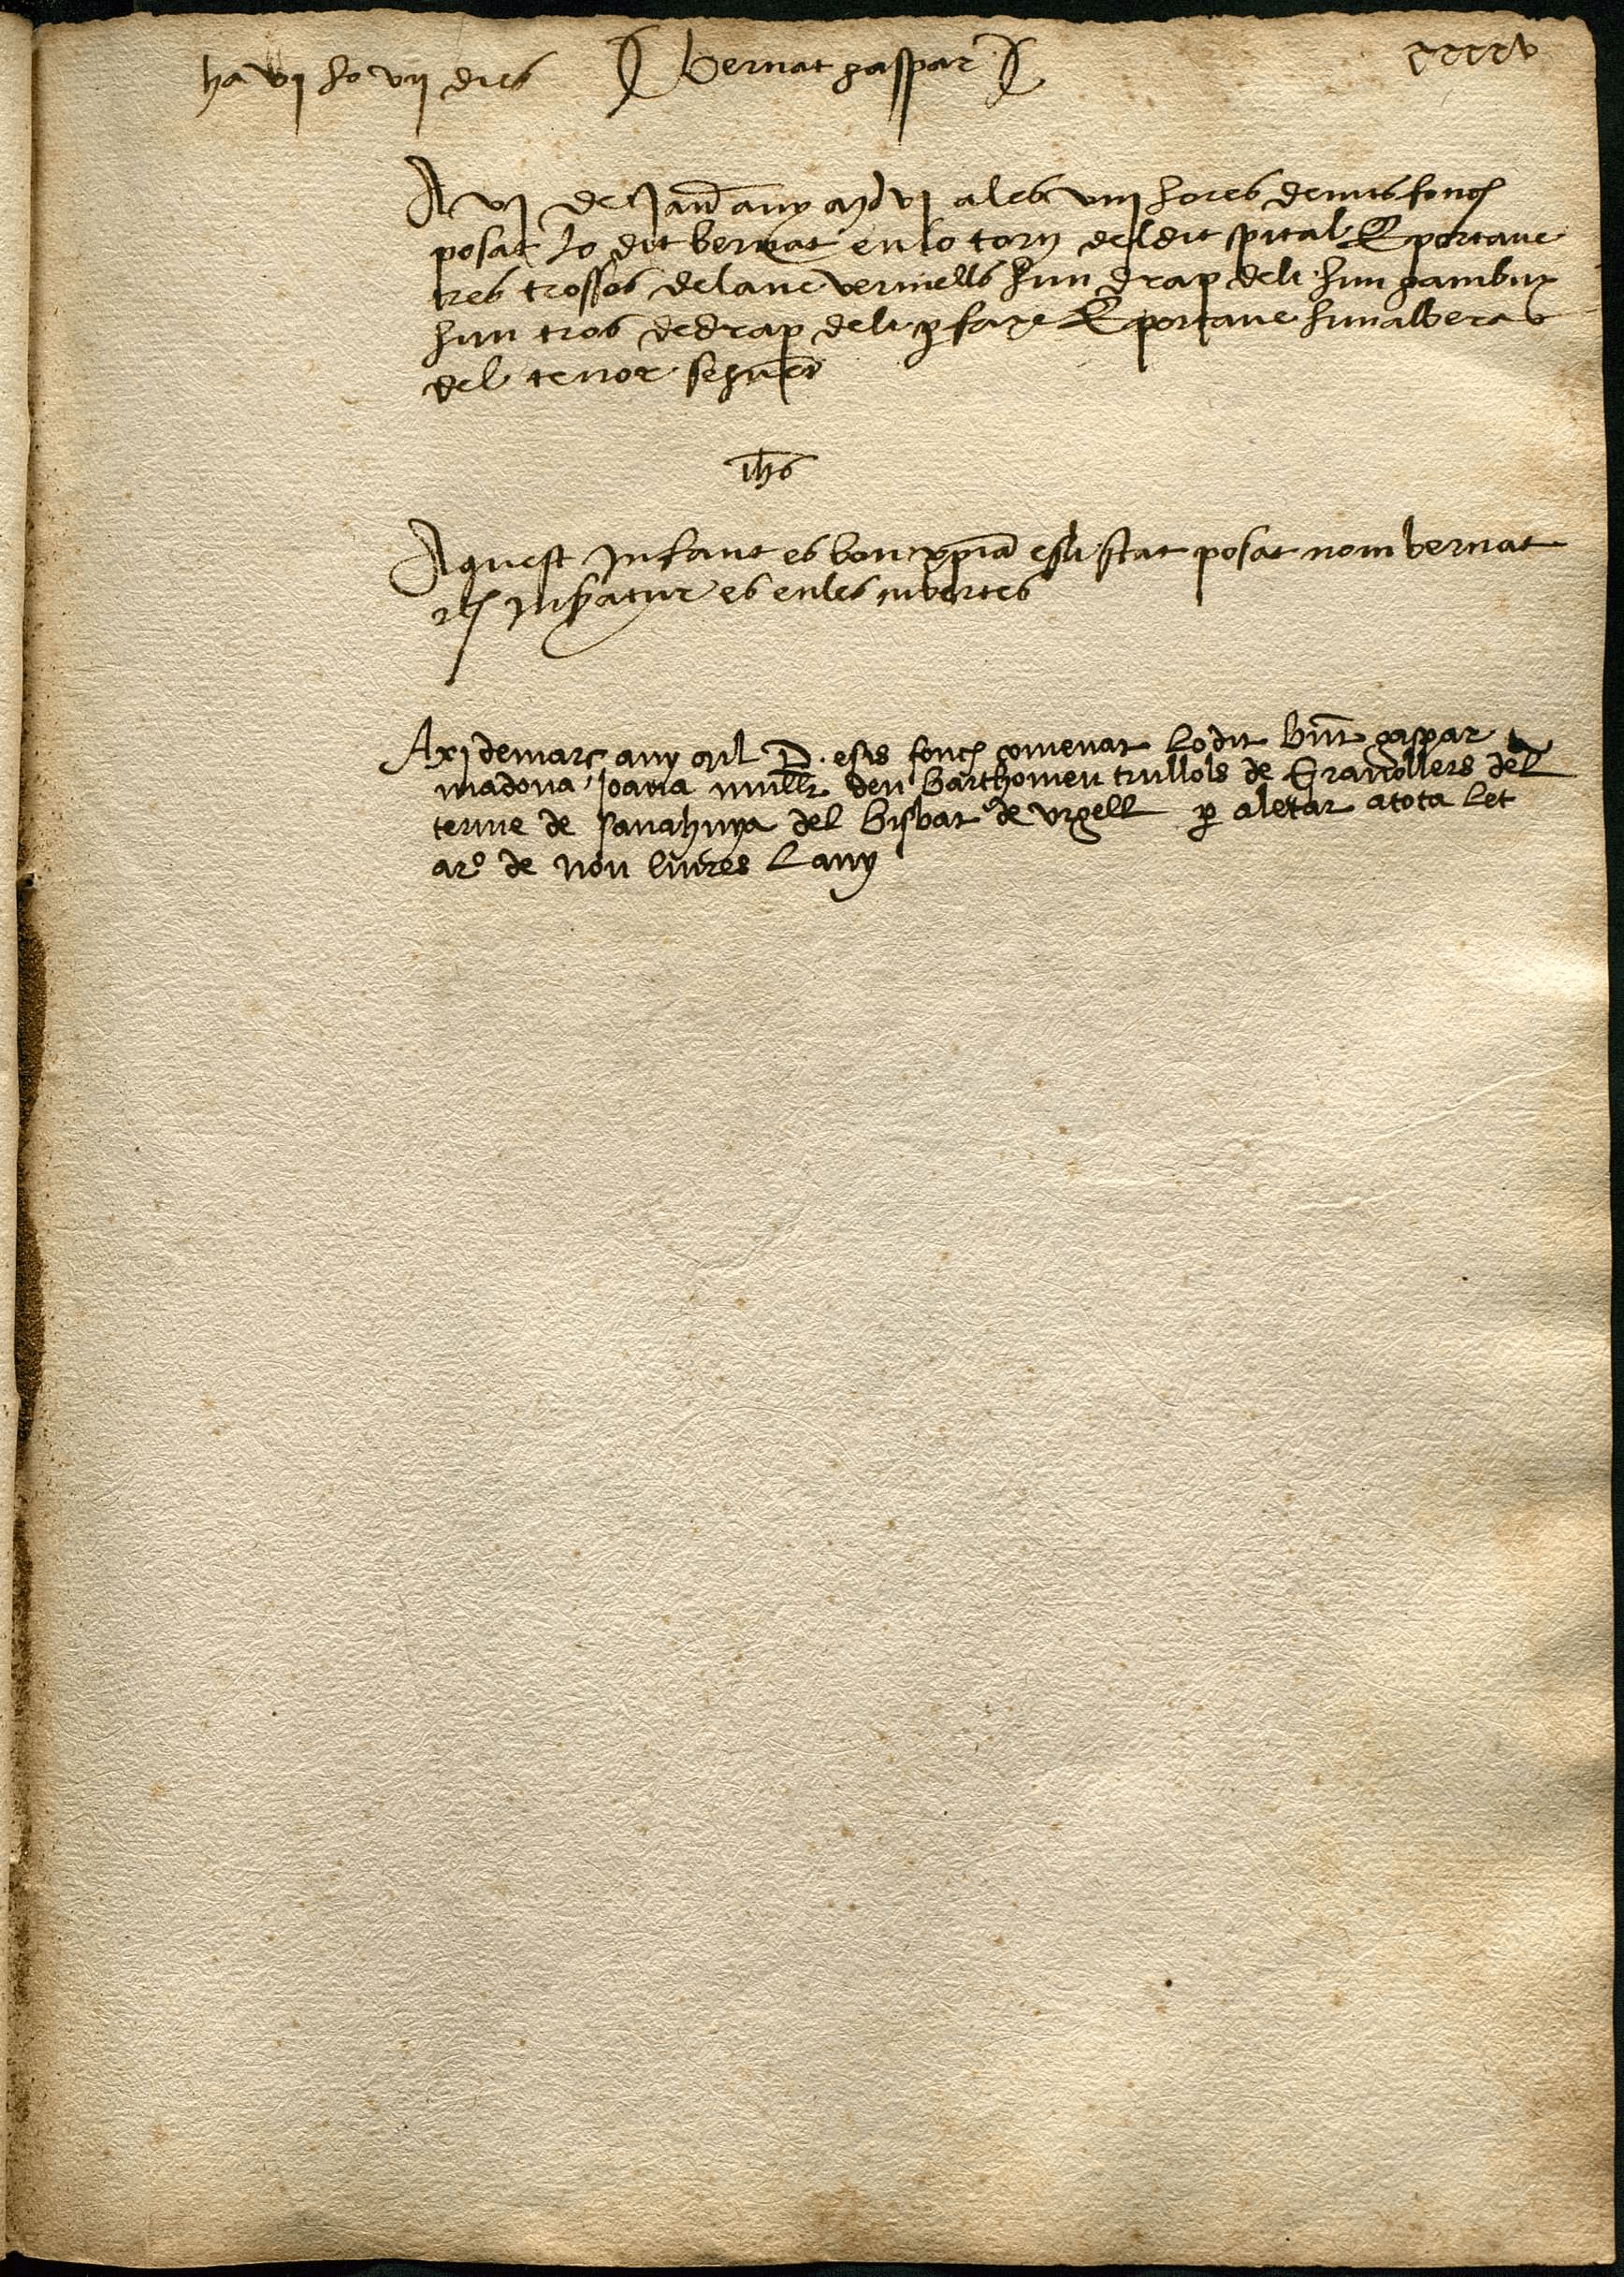 ha vj ho vij dies
Bernat gaspar
xxxxv
A vj de Jan̄ any mdvj ales viiij hores de nit fonch
posat lo dit bernat en lo torn del dit spital E portave
tres trossos de lane vermells hun drap de li hun gambux
hun tros de drap de li p faxe E portave hun albera
del tenor seguēt
Jhs
Aquest Infant es bon xp̄ia esli stat posat nom bernat
Infantat es en les cubertes
A xj de març any mil D. e sis fonch comenat lo dit bn̄t gaspar a
madona Joana mullr den Barthomeu trullols de Granollers del
terme de sanahuya del bisbat de vrgell p aletar a tota let
a ro de nou liures lany